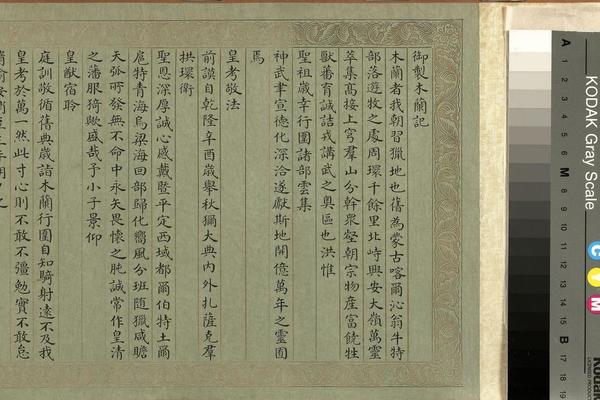 御製木蘭記
木蘭者我朝習獵地也舊為蒙古喀爾沁翁牛特
部落遊牧之處周環千餘里北峙興安大嶺萬靈
萃集高接上穹羣山分幹衆壑朝宗物產富饒牲
獸蕃育誠詰戎講武之奧區也洪惟
聖祖歲幸行圍諸部雲集
神武聿宣德化深洽遂獻斯地開億萬年之靈囿
焉
皇考敬法
前謨自乾隆辛酉歲舉秋獮大典内外扎薩克羣
拱環衛
聖恩深厚誠心感戴暨平定西域都爾伯特土爾
扈特青海烏梁海回部歸化嚮風分班隨獵咸瞻
天弧所發無不命中永矢畏懷之肫誠常作皇清
之藩服猗歟盛哉予小子景仰
皇猷宿聆
庭訓敬循舊典歲詣木蘭行圍自知騎射遠不及我
皇考於萬一然此寸心則不敢不彊勉實不敢怠
KODAK Gray Scale
A 1 2 3 4 5 6 M 8 9 10 11 12 13 14 15 B 17 18 19
C
Y
M
Kodak